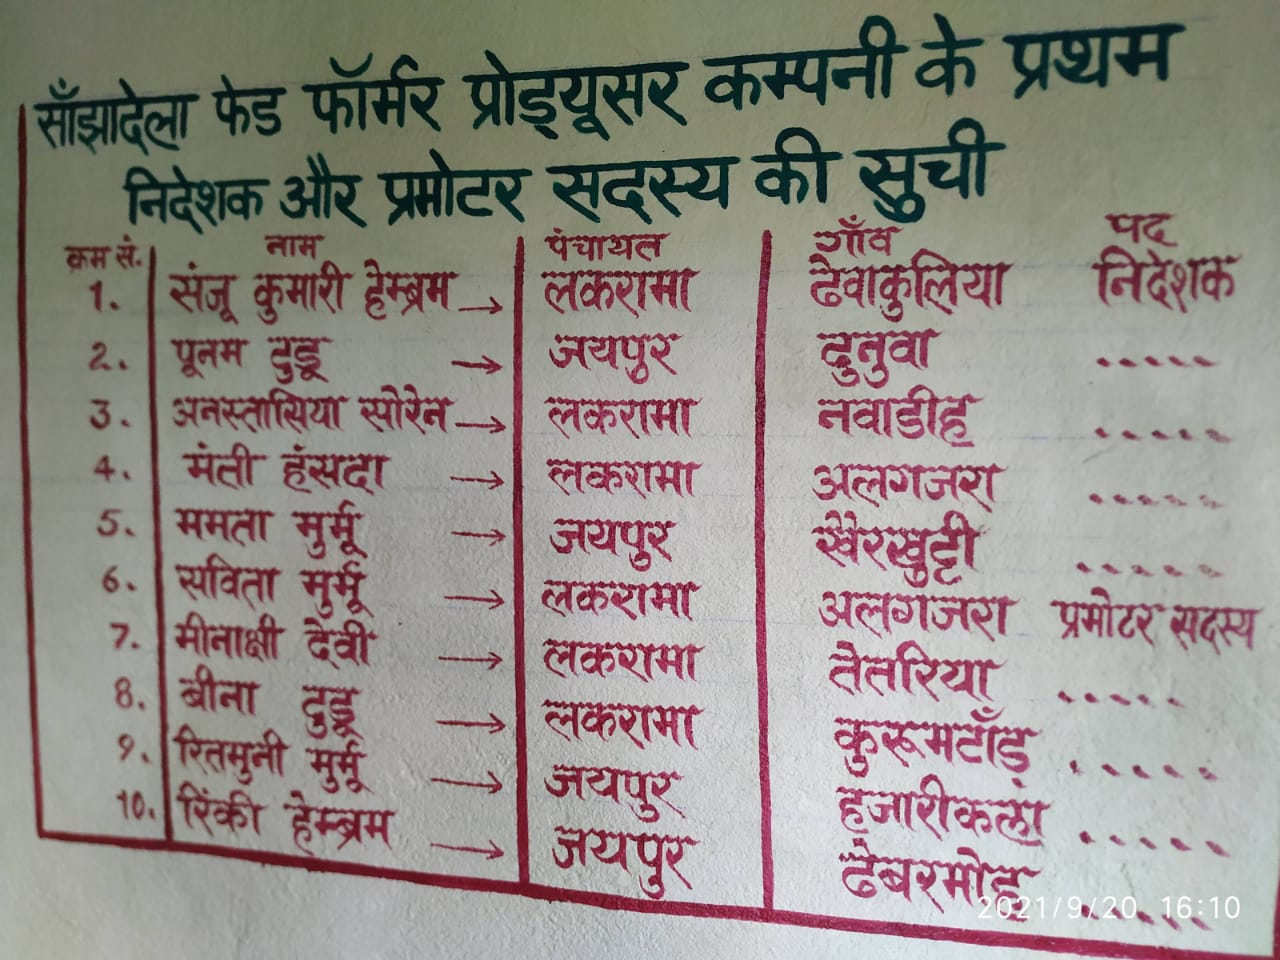 साँझादेला फेड फॉर्मर प्रोड्यूसर कम्पनी के प्रथम
निदेशक और प्रमोटर सदस्य की सुची
क्रम सं. नाम पंचायत गाँव पद
1. संजू कुमारी हेम्ब्रम → लकरामा ढेवाकुलिया निदेशक
2. पूनम टुडू → जयपुर दुनुवा .....
3. अनस्तासिया सोरेन → लकरामा नवाडीह .....
4. मंती हंसदा → लकरामा अलगजरा .....
5. ममता मुर्मू → जयपुर खैरखुट्टी .....
6. सविता मुर्मू → लकरामा अलगजरा प्रमोटर सदस्य
7. मीनाक्षी देवी → लकरामा तेतरिया .....
8. बीना टुडू → लकरामा कुरूमटाँड़ .....
9. रितमुनी मुर्मू → जयपुर हजारीकला .....
10. रिंकी हेम्ब्रम → जयपुर ढेबरमोह .....
2021/9/20 16:10